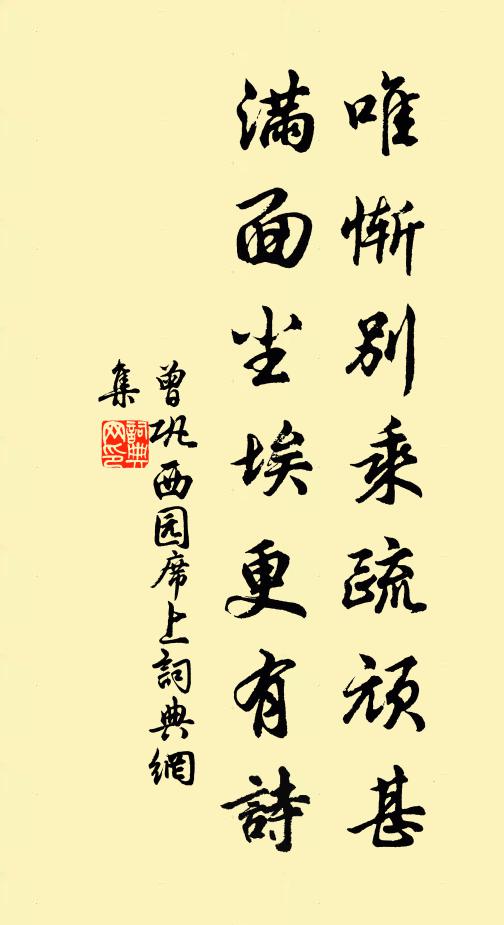 唯惭别乘疏顽甚
满面尘埃更有詩
曾巩西园席上詞典網
集
詞典网印